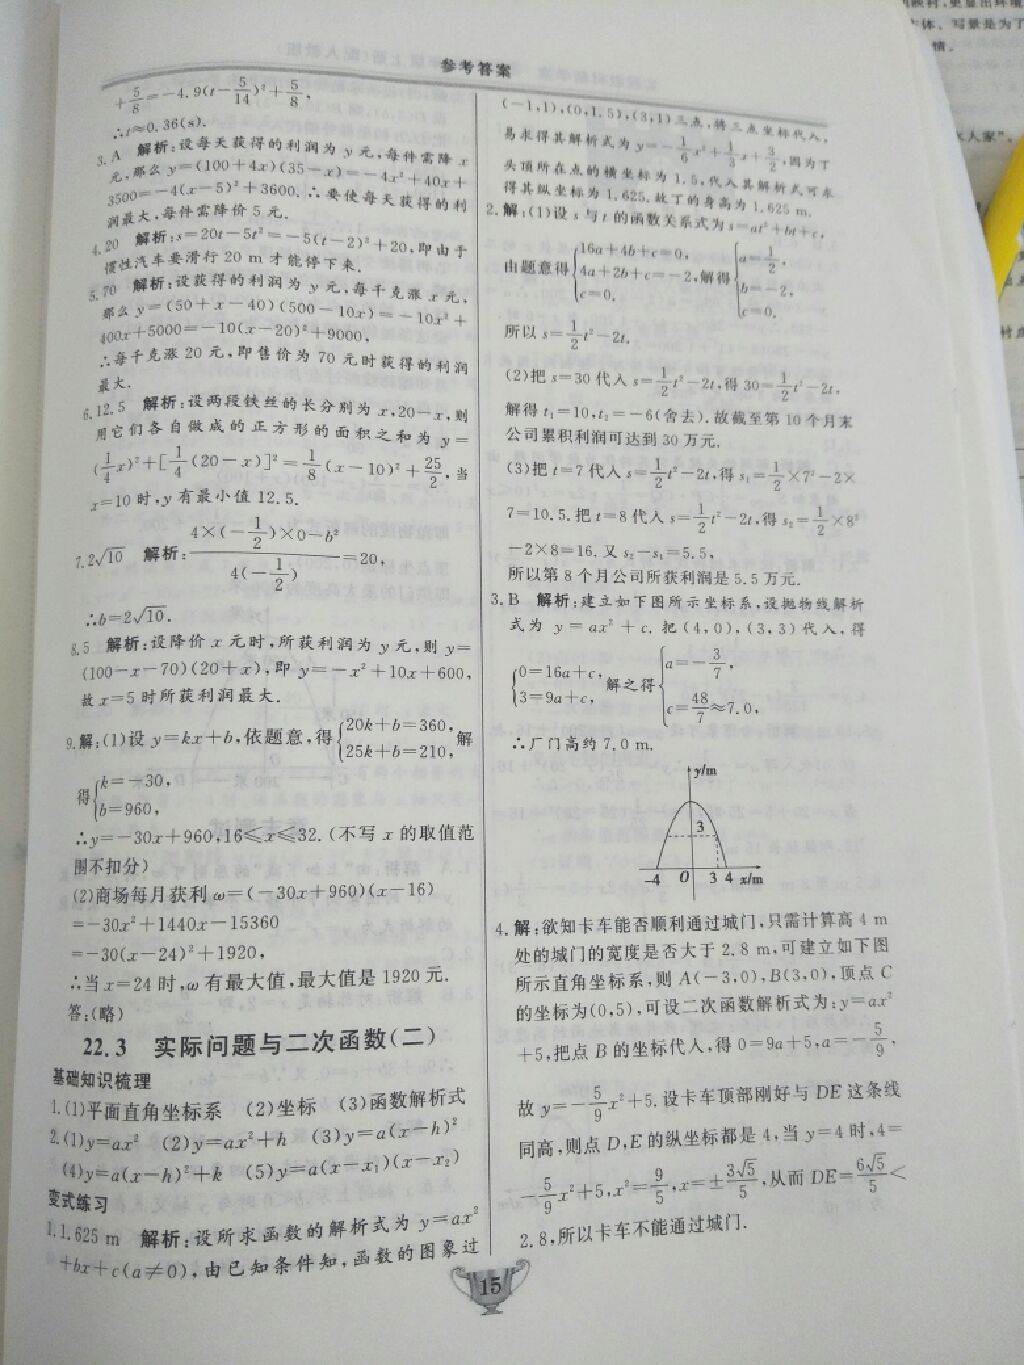 参考答案
+5/8=-4.9(t-5/14)²+5/8,
∴t≈0.36(s).
3.A 解析:设每天获得的利润为 y 元,每件需降 x
元,那么 y=(100+4x)(35-x)=-4x²+40x+
3500=-4(x-5)²+3600.∴要使每天获得的利
润最大,每件需降价 5 元.
4.20 解析:s=20t-5t²=-5(t-2)²+20,即由于
惯性汽车要滑行 20 m 才能停下来.
5.70 解析:设获得的利润为 y 元,每千克涨 x 元,
那么 y=(50+x-40)(500-10x)=-10x²+
400x+5000=-10(x-20)²+9000,
∴每千克涨 20 元,即售价为 70 元时获得的利润
最大.
6.12.5 解析:设两段铁丝的长分别为 x,20-x,则
用它们各自做成的正方形的面积之和为 y=
(1/4x)²+[1/4(20-x)]²=1/8(x-10)²+25/2,当
x=10 时,y 有最小值 12.5.
7.2√10 解析:(4×(-1/2)×0-b²)/(4(-1/2))=20,
∴b=2√10.
8.5 解析:设降价 x 元时,所获利润为 y 元,则 y=
(100-x-70)(20+x),即 y=-x²+10x+600,
故 x=5 时所获利润最大.
9.解:(1)设 y=kx+b,依题意,得{20k+b=360, 25k+b=210,解
得{k=-30, b=960,
∴y=-30x+960,16≤x≤32.(不写 x 的取值范
围不扣分)
(2)商场每月获利 ω=(-30x+960)(x-16)
=-30x²+1440x-15360
=-30(x-24)²+1920,
∴当 x=24 时,ω 有最大值,最大值是 1920 元.
答:(略)
22.3 实际问题与二次函数(二)
基础知识梳理
1.(1)平面直角坐标系 (2)坐标 (3)函数解析式
2.(1)y=ax² (2)y=ax²+h (3)y=a(x-h)²
(4)y=a(x-h)²+k (5)y=a(x-x₁)(x-x₂)
变式练习
1.1.625 m 解析:设所求函数的解析式为 y=ax²
+bx+c(a≠0),由已知条件知,函数的图象过
(-1,1),(0,1.5),(3,1)三点,将三点坐标代入,
易求得其解析式为 y=-1/6x²+1/3x+3/2,因为丁
头顶所在点的横坐标为 1.5,代入其解析式可求
得其纵坐标为 1.625.故丁的身高为 1.625 m.
2.解:(1)设 s 与 t 的函数关系式为 s=at²+bt+c,
由题意得{16a+4b+c=0, 4a+2b+c=-2, c=0. 解得{a=1/2, b=-2, c=0.
所以 s=1/2t²-2t.
(2)把 s=30 代入 s=1/2t²-2t,得 30=1/2t²-2t.
解得 t₁=10,t₂=-6(舍去).故截至第 10 个月末
公司累积利润可达到 30 万元.
(3)把 t=7 代入 s=1/2t²-2t,得 s₁=1/2×7²-2×
7=10.5.把 t=8 代入 s=1/2t²-2t,得 s₂=1/2×8²
-2×8=16.又 s₂-s₁=5.5,
所以第 8 个月公司所获利润是 5.5 万元.
3.B 解析:建立如下图所示坐标系,设抛物线解析
式为 y=ax²+c.把(4,0),(3,3)代入,得
{0=16a+c, 3=9a+c, 解之得{a=-3/7, c=48/7≈7.0,
∴厂门高约 7.0 m.
y/m
3
-4 O 3 4 x/m
4.解:欲知卡车能否顺利通过城门,只需计算高 4 m
处的城门的宽度是否大于 2.8 m,可建立如下图
所示直角坐标系,则 A(-3,0),B(3,0),顶点 C
的坐标为(0,5),可设二次函数解析式为:y=ax²
+5,把点 B 的坐标代人,得 0=9a+5,a=-5/9,
故 y=-5/9x²+5.设卡车顶部刚好与 DE 这条线
同高,则点 D,E 的纵坐标都是 4,当 y=4 时,4=
-5/9x²+5,x²=9/5,x=±3√5/5,从而 DE=6√5/5<
2.8,所以卡车不能通过城门.
15